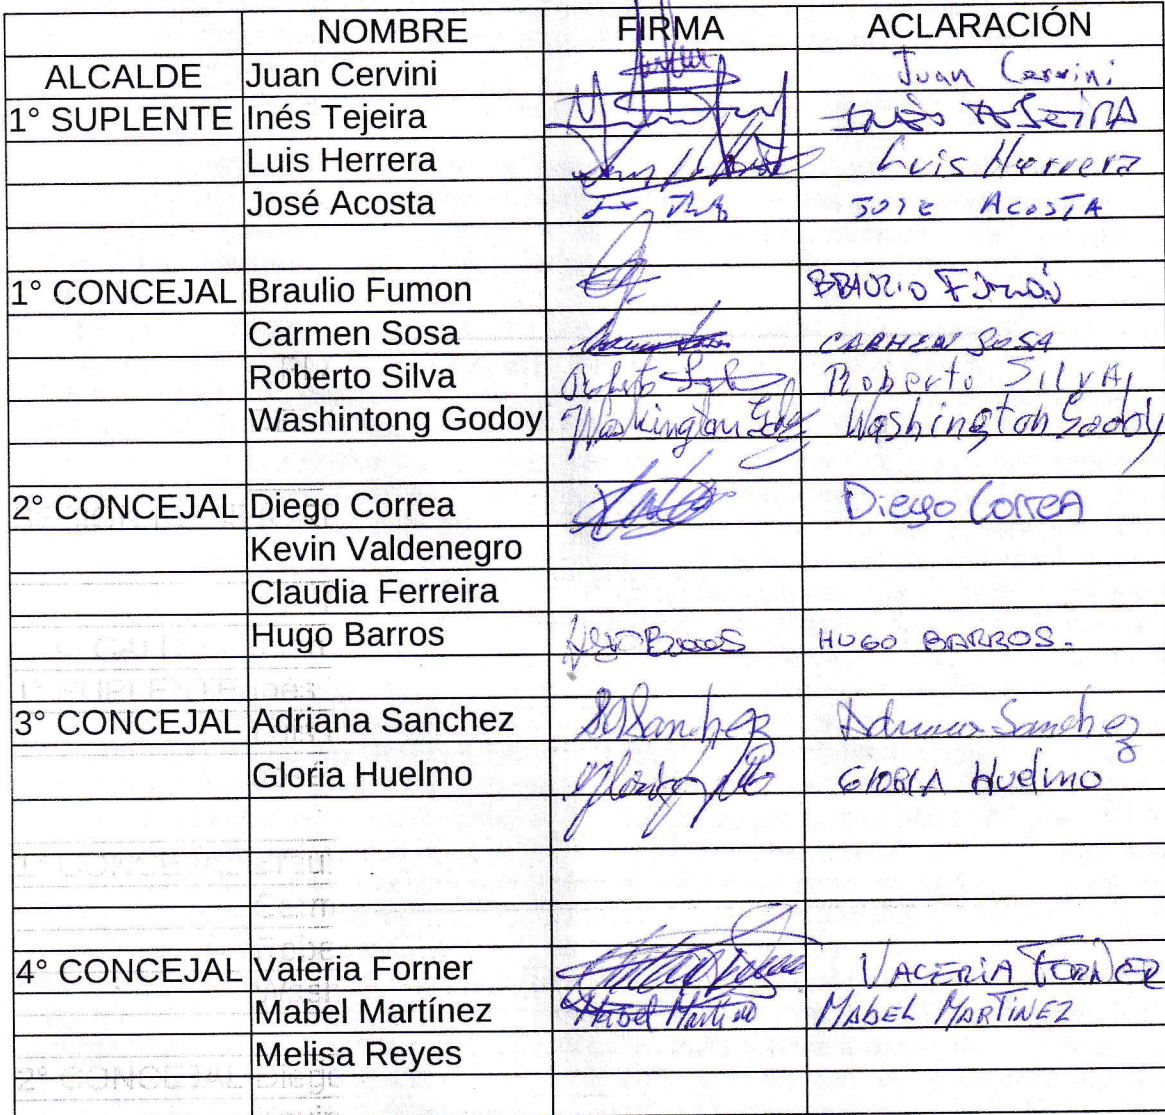 NOMBRE FIRMA ACLARACIÓN
ALCALDE Juan Cervini Juan Cervini
1° SUPLENTE Inés Tejeira INÉS TEJEIRA
Luis Herrera Luis Herrera
José Acosta JOSE ACOSTA
1° CONCEJAL Braulio Fumon BRAULIO FUMÓN
Carmen Sosa CARMEN SOSA
Roberto Silva Roberto Silva
Washintong Godoy Washington Godoy Washington Godoy
2° CONCEJAL Diego Correa Diego Correa
Kevin Valdenegro
Claudia Ferreira
Hugo Barros Hugo Barros HUGO BARROS.
3° CONCEJAL Adriana Sanchez Sanchez Adriana Sanchez
Gloria Huelmo GLORIA Huelmo
4° CONCEJAL Valeria Forner VALERIA FORNER
Mabel Martínez Mabel Martinez MABEL MARTINEZ
Melisa Reyes